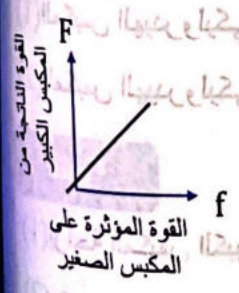 F
القوة الناتجة من
المكبس الكبير
f
القوة المؤثرة على
المكبس الصغير